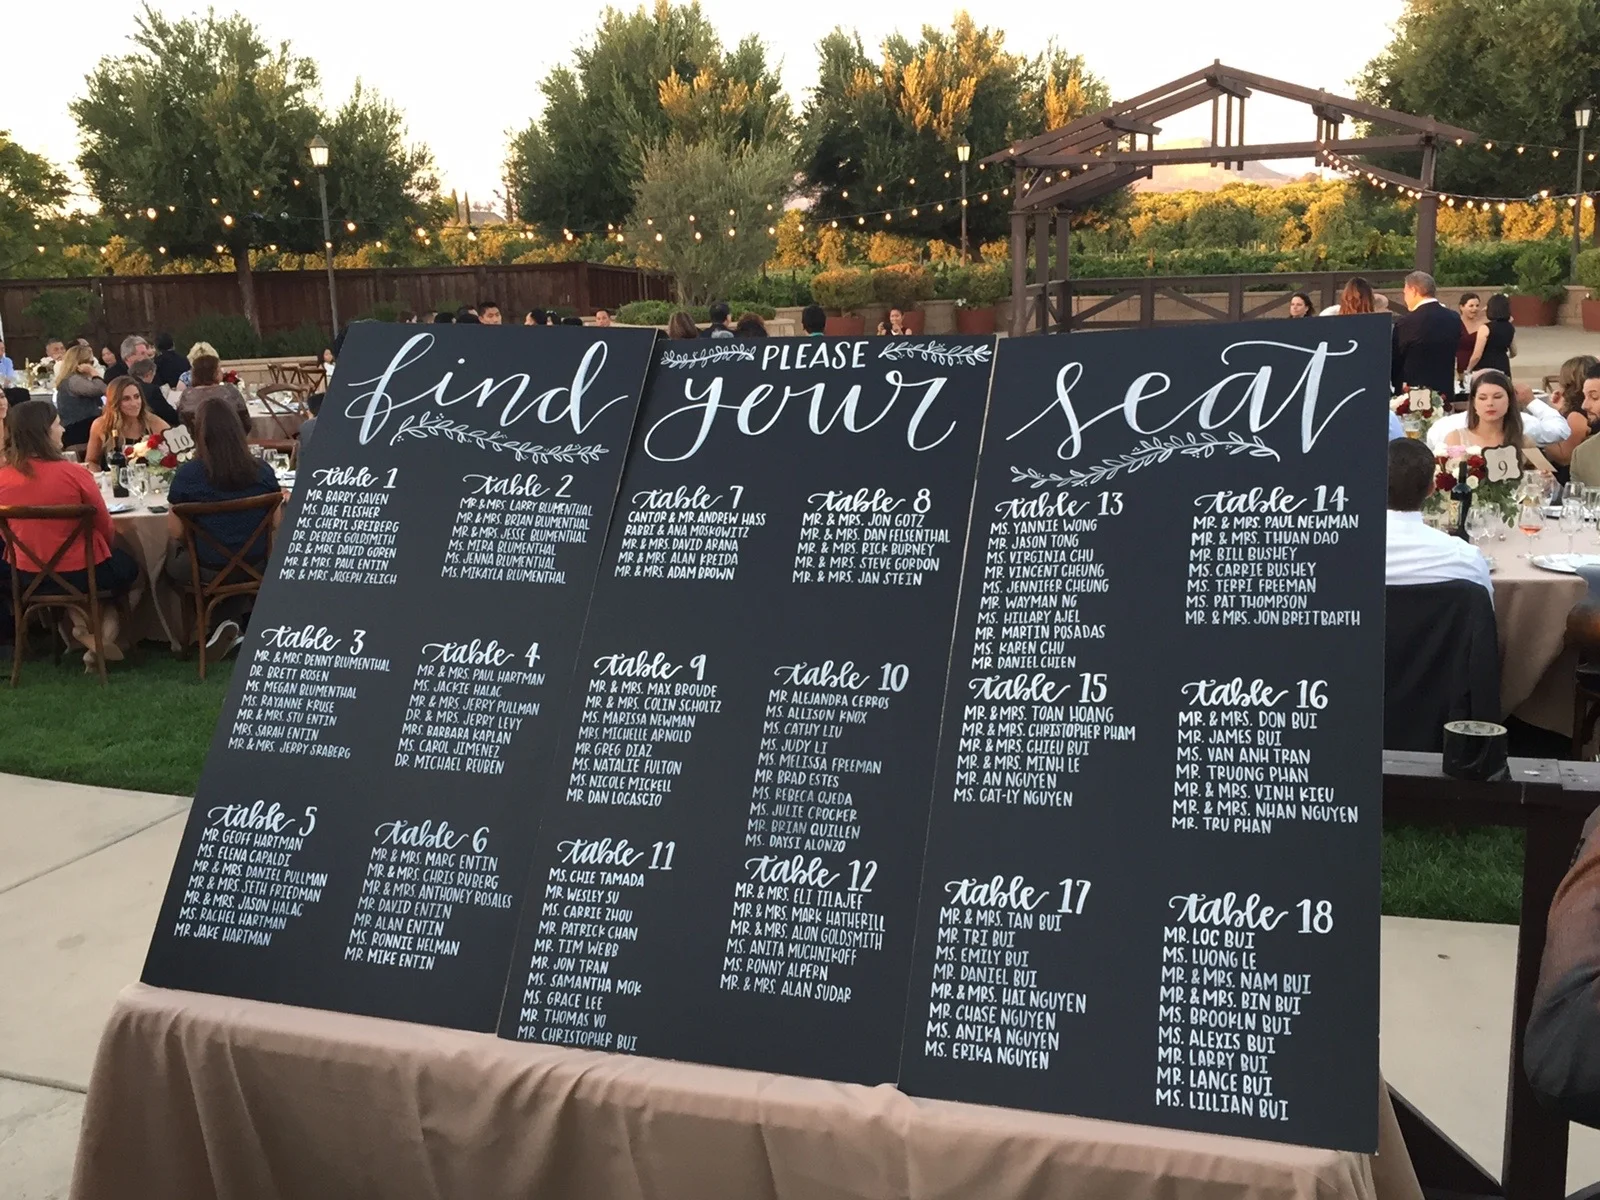 find
PLEASE
your
seat
table 1
MR. BARRY SAVEN
MS. DAE FLESHER
MS. CHERYL SREIBERG
DR. DEBBIE GOLDSMITH
DR. & MRS. DAVID GOREN
MR. & MRS. PAUL ENTIN
MR. & MRS. JOSEPH ZELICH
table 2
MR. & MRS. LARRY BLUMENTHAL
MR. & MRS. BRIAN BLUMENTHAL
MR. & MRS. JESSE BLUMENTHAL
MS. MIRA BLUMENTHAL
MS. JENNA BLUMENTHAL
MS. MIKAYLA BLUMENTHAL
table 3
MR. & MRS. DENNY BLUMENTHAL
DR. BRETT ROSEN
MS. MEGAN BLUMENTHAL
MS. RAYANNE KRUSE
MR. & MRS. STU ENTIN
MRS. SARAH ENTIN
MR. & MRS. JERRY SRABERG
table 4
MR. & MRS. PAUL HARTMAN
MS. JACKIE HALAC
MR. & MRS. JERRY PULLMAN
DR. & MRS. JERRY LEVY
MRS. BARBARA KAPLAN
MS. CAROL JIMENEZ
DR. MICHAEL REUBEN
table 5
MR. GEOFF HARTMAN
MS. ELENA CAPALDI
MR. & MRS. DANIEL PULLMAN
MR. & MRS. SETH FRIEDMAN
MR. & MRS. JASON HALAC
MS. RACHEL HARTMAN
MR. JAKE HARTMAN
table 6
MR. & MRS. MARC ENTIN
MR. & MRS. CHRIS RUBERG
MR. & MRS. ANTHONEY ROSALES
MR. DAVID ENTIN
MR. ALAN ENTIN
MS. RONNIE HELMAN
MR. MIKE ENTIN
table 7
CANTOR & MR. ANDREW HASS
RABBI & ANA MOSKOWITZ
MR. & MRS. DAVID ARANA
MR. & MRS. ALAN KREIDA
MR. & MRS. ADAM BROWN
table 8
MR. & MRS. JON GOTZ
MR. & MRS. DAN FELSENTHAL
MR. & MRS. RICK BURNEY
MR. & MRS. STEVE GORDON
MR. & MRS. JAN STEIN
table 9
MR. & MRS. MAX BROUDE
MR. & MRS. COLIN SCHOLTZ
MS. MARISSA NEWMAN
MRS. MICHELLE ARNOLD
MR. GREG DIAZ
MS. NATALIE FULTON
MS. NICOLE MICKELL
MR. DAN LOCASCIO
table 10
MR. ALEJANDRA CERROS
MS. ALLISON KNOX
MS. CATHY LIU
MS. JUDY LI
MS. MELISSA FREEMAN
MR. BRAD ESTES
MS. REBECA OJEDA
MS. JULIE CROCKER
MR. BRIAN QUILLEN
MS. DAYSI ALONZO
table 11
MS. CHIE TAMADA
MR. WESLEY SU
MS. CARRIE ZHOU
MR. PATRICK CHAN
MR. TIM WEBB
MR. JON TRAN
MS. SAMANTHA MOK
MS. GRACE LEE
MR. THOMAS VO
MR. CHRISTOPHER BUI
table 12
MR. & MRS. ELI TILAJEF
MR. & MRS. MARK HATHERILL
MR. & MRS. ALON GOLDSMITH
MS. ANITA MUCHNIKOFF
MS. RONNY ALPERN
MR. & MRS. ALAN SUDAR
table 13
MS. YANNIE WONG
MR. JASON TONG
MS. VIRGINIA CHU
MR. VINCENT CHEUNG
MS. JENNIFER CHEUNG
MR. WAYMAN NG
MS. HILLARY AJEL
MR. MARTIN POSADAS
MS. KAREN CHU
MR. DANIEL CHIEN
table 14
MR. & MRS. PAUL NEWMAN
MR. & MRS. THUAN DAO
MR. BILL BUSHEY
MS. CARRIE BUSHEY
MS. TERRI FREEMAN
MS. PAT THOMPSON
MR. & MRS. JON BREITBARTH
table 15
MR. & MRS. TOAN HOANG
MR. & MRS. CHRISTOPHER PHAM
MR. & MRS. CHIEU BUI
MR. & MRS. MINH LE
MR. AN NGUYEN
MS. CAT-LY NGUYEN
table 16
MR. & MRS. DON BUI
MR. JAMES BUI
MS. VAN ANH TRAN
MR. TRUONG PHAN
MR. & MRS. VINH KIEU
MR. & MRS. NHAN NGUYEN
MR. TRU PHAN
table 17
MR. & MRS. TAN BUI
MR. TRI BUI
MS. EMILY BUI
MR. DANIEL BUI
MR. & MRS. HAI NGUYEN
MR. CHASE NGUYEN
MS. ANIKA NGUYEN
MS. ERIKA NGUYEN
table 18
MR. LOC BUI
MS. LUONG LE
MR. & MRS. NAM BUI
MR. & MRS. BIN BUI
MS. BROOKLN BUI
MS. ALEXIS BUI
MR. LARRY BUI
MR. LANCE BUI
MS. LILLIAN BUI
10
6
9